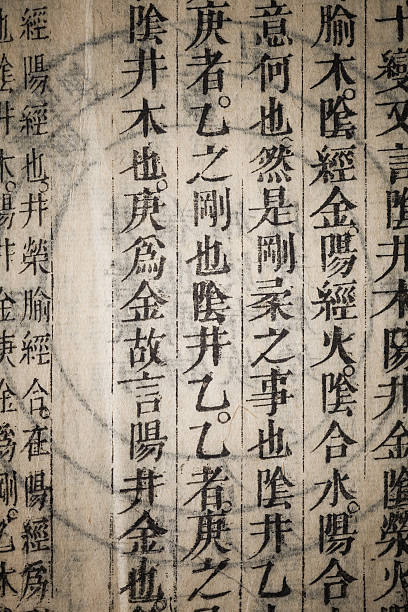 十變又言陰井木陽井金陰榮火
腧木。陰經金。陽經火。陰合水。陽合
意何也然是剛柔之事也陰井乙
庚者。乙之剛也陰井乙。乙者。庚之
陰井木也。庚爲金故言陽井金也。
經陽經也。井榮腧經合。在陽經爲
也陰井木。陽井金庚金爲剛。乙木